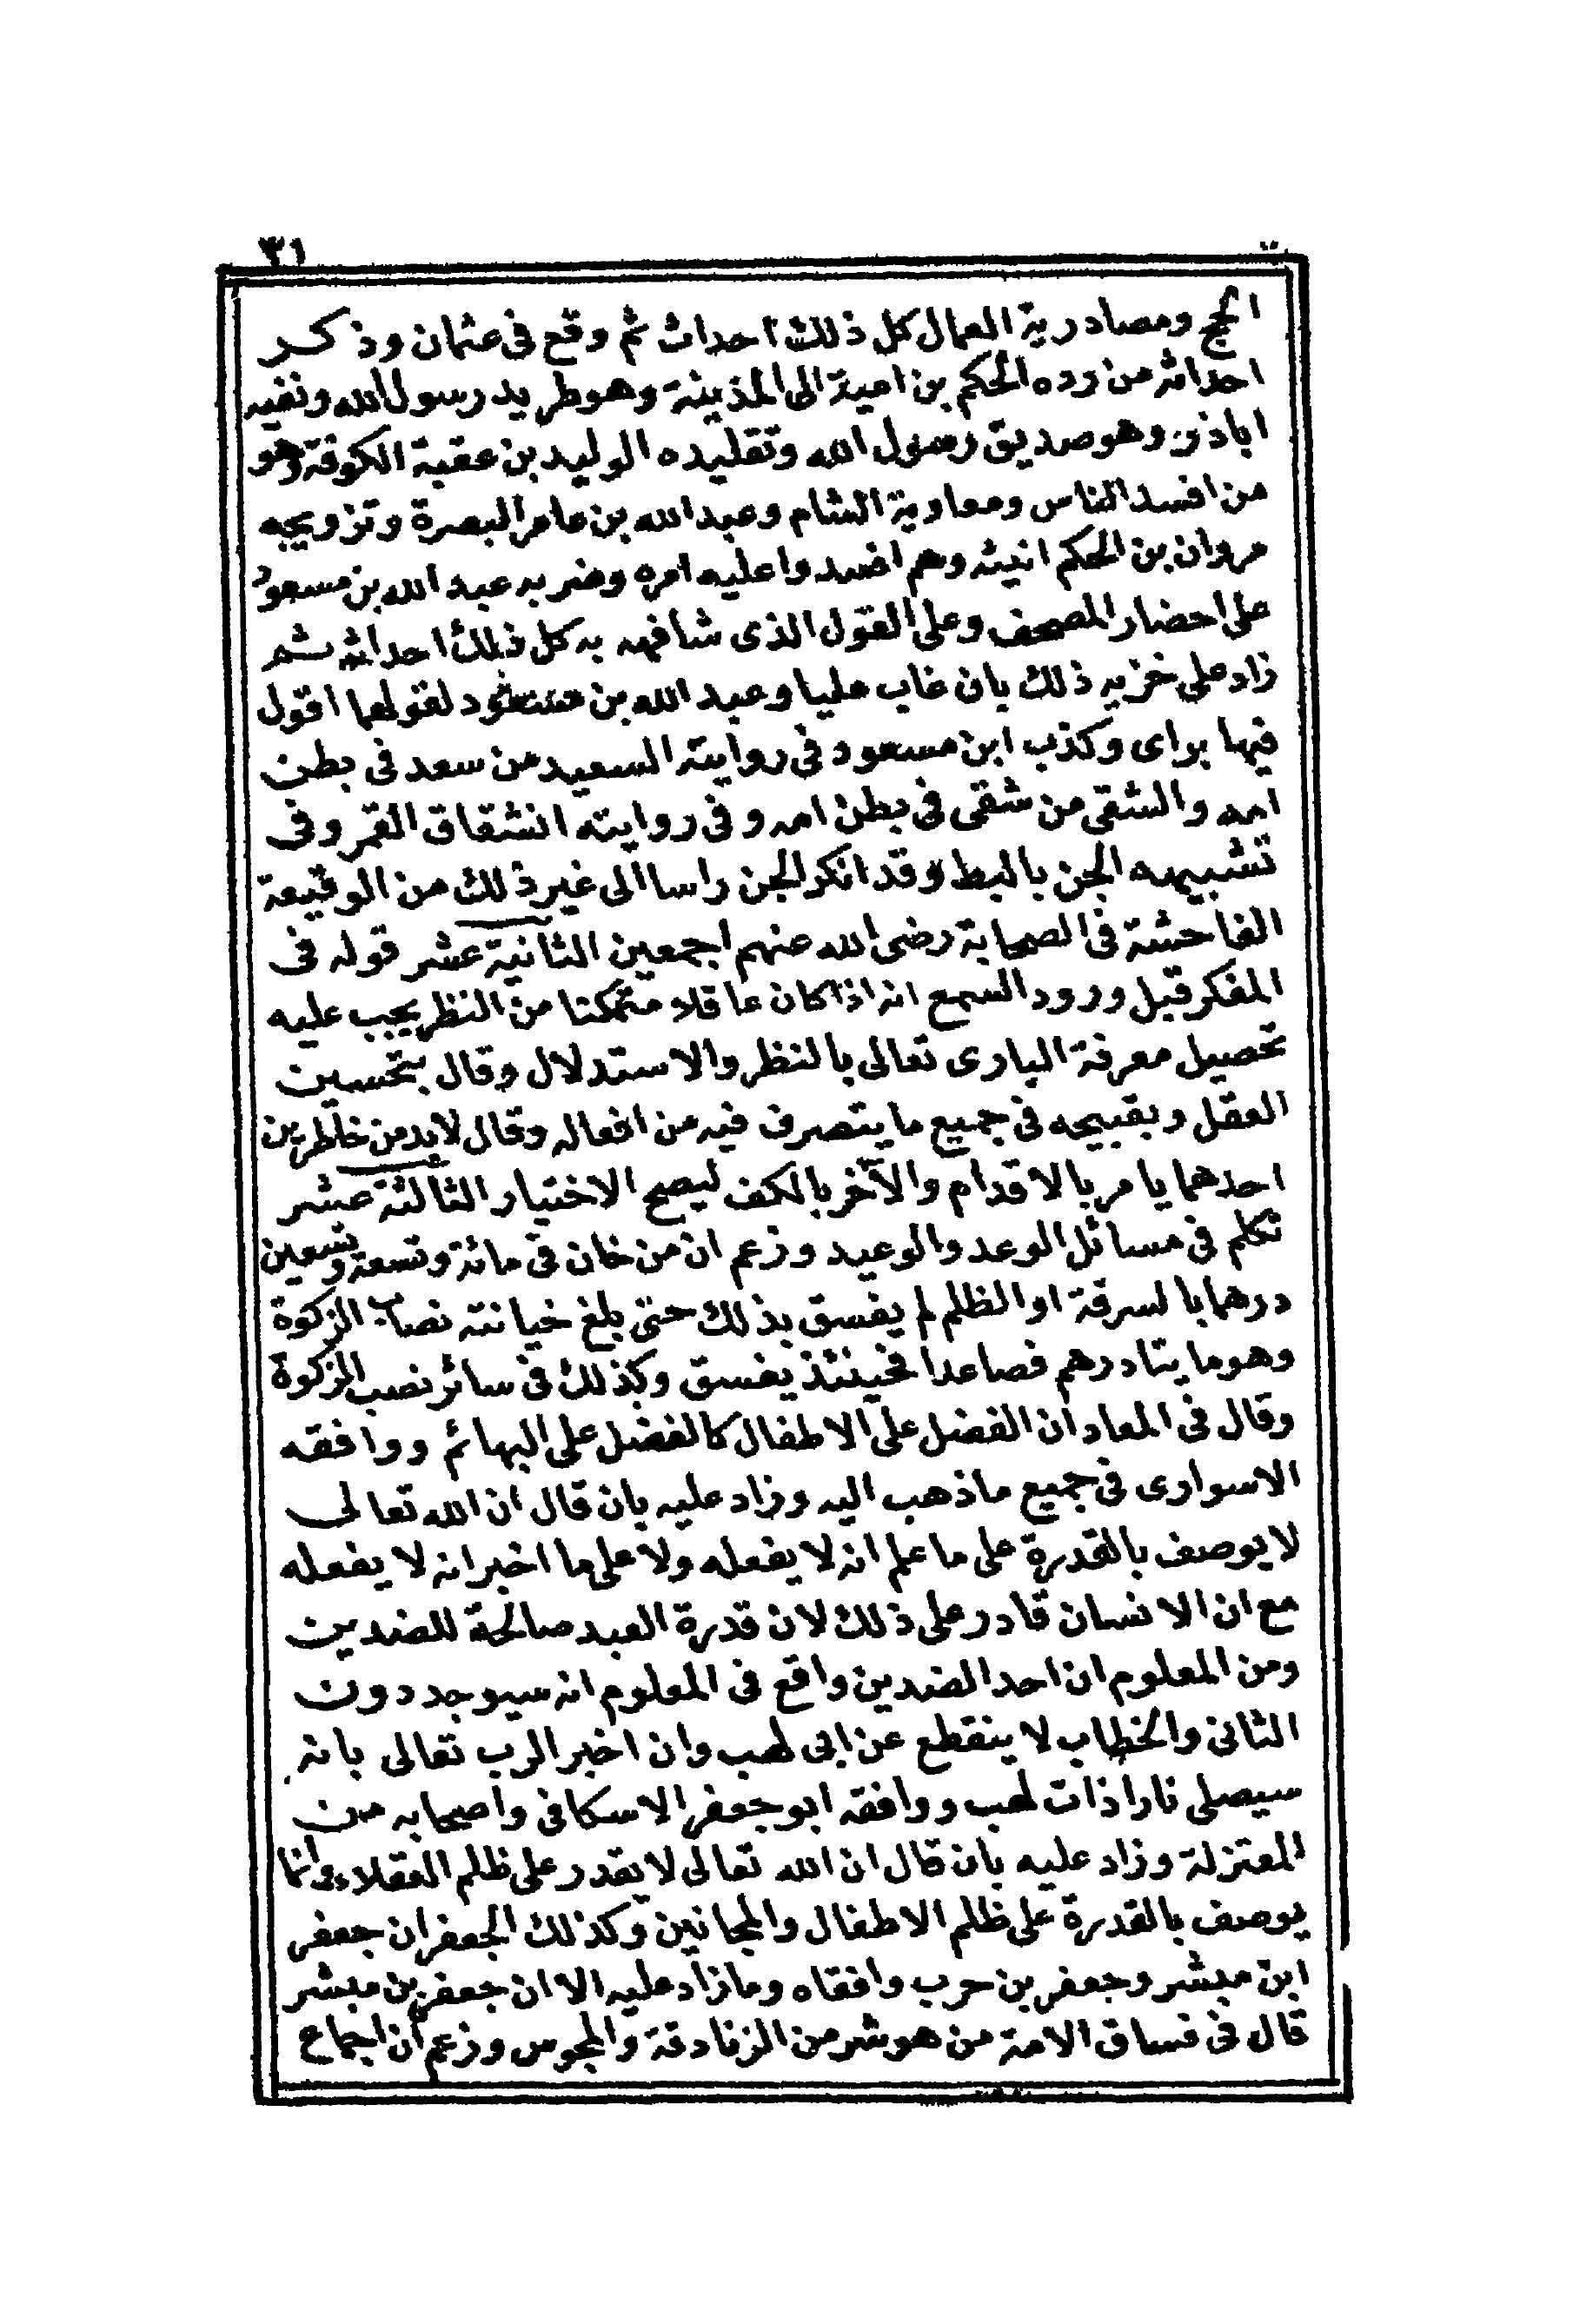 ٣١
الحج ومصادرية العمال كل ذلك احداث ثم وقع فى عثمان وذكر
احداثه من رده الحكم بن امية الى المدينة وهو طريد رسول الله ونفيه
اباذر وهو صديق رسول الله وتقليده الوليد بن عقبة الكوفة وهو
من افسد الناس ومعاوية الشام وعبد الله بن عامر البصرة وتزويجه
مروان بن الحكم انيته وهم افسدوا عليه امره وضربه عبد الله بن مسعود
على احضار المصحف وعلى القول الذى شافهه به كل ذلك احداثه ثم
زاد على خزيه ذلك بان غاب عليا وعبد الله بن مسعود لقولهما اقول
فيها براى وكذب ابن مسعود فى روايته السعيد من سعد فى بطن
امه والشقى من شقى فى بطن امه وفى روايته انشقاق القمر وفى
تشبيهه الجن بالبط وقد انكر الجن راسا الى غير ذلك من الوقيعة
الفاحشة فى الصحابة رضى الله عنهم اجمعين الثانية عشر قوله فى
المفكر قبل ورود السمع انه اذا كان عاقلا متمكنا من النظر يجب عليه
تحصيل معرفة البارى تعالى بالنظر والاستدلال وقال بتحسين
العقل وبقبيحه فى جميع ما يتصرف فيه من افعاله وقال لابد من خاطرين
احدهما يامر بالاقدام والآخر بالكف ليصح الاختيار الثالثة عشر
تكلم فى مسائل الوعد والوعيد وزعم ان من خان فى مائة وتسعة وتسعين
درهما بالسرقة او الظلم لم يفسق بذلك حتى بلغ خيانته نصاب الزكوة
وهو مايتادرهم فصاعدا فحينئذ يفسق وكذلك فى سائر نصب الزكوة
وقال فى المعاد ان الفضل على الاطفال كالفضل على البهائم ووافقه
الاسوارى فى جميع ماذهب اليه وزاد عليه بان قال ان الله تعالى
لا يوصف بالقدرة على ما علم انه لا يفعله ولا على ما اخبر انه لا يفعله
مع ان الانسان قادر على ذلك لان قدرة العبد صالحة للضدين
ومن المعلوم ان احد الضدين واقع فى المعلوم انه سيوجد دون
الثانى والخطاب لا ينقطع عن ابى لهب وان اخبر الرب تعالى بانه
سيصلى نارا ذات لهب ووافقه ابو جعفر الاسكافى واصحابه من
المعتزلة وزاد عليه بان قال ان الله تعالى لا يقدر على ظلم العقلاء وانما
يوصف بالقدرة على ظلم الاطفال والمجانين وكذلك الجعفران جعفر
ابن مبشر وجعفر بن حرب وافقاه ومازاد عليه الا ان جعفر بن مبشر
قال فى فساق الامة من هو شر من الزنادقة والمجوس وزعم ان اجماع